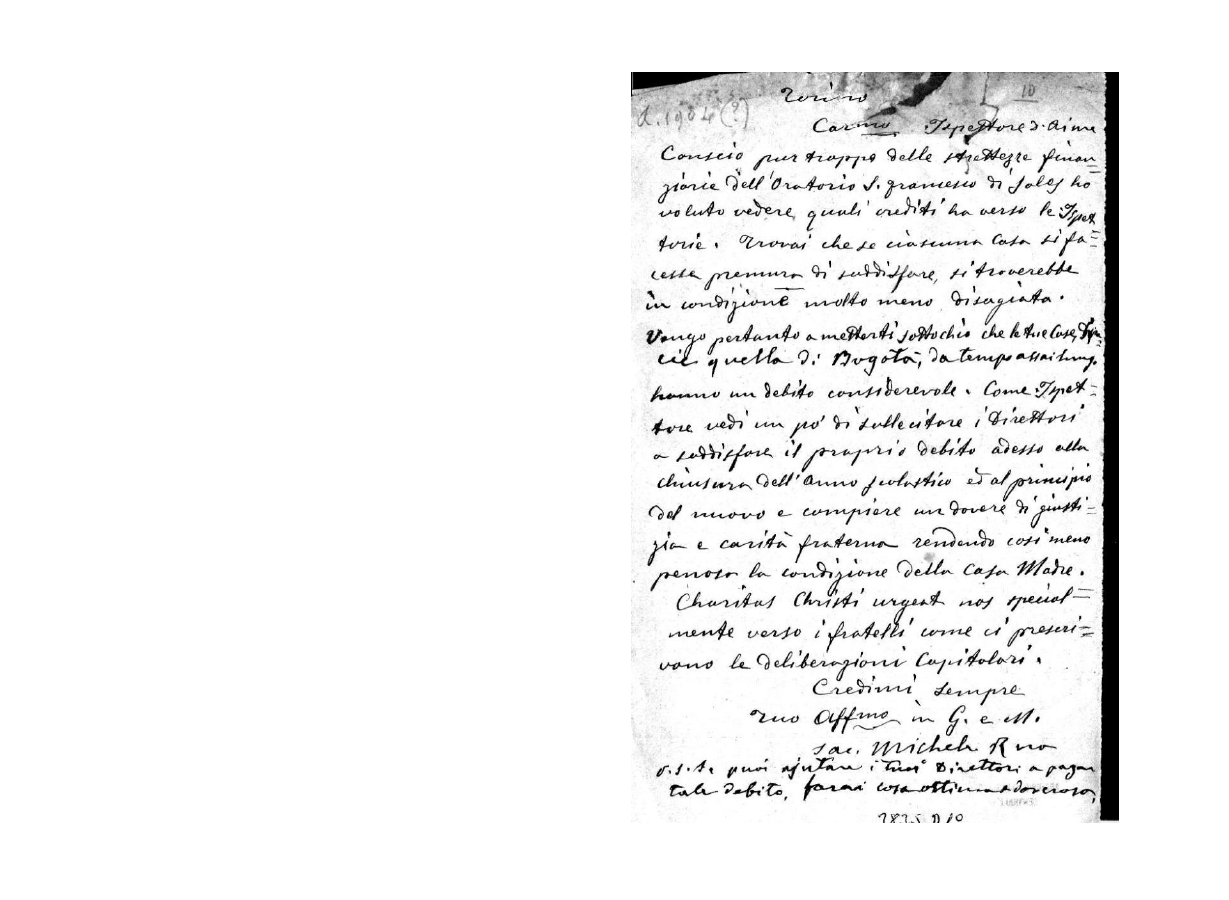 Torino
10
d. 1904 (?)
Carmo Ispettore D. Aime
Conscio pur troppo delle strettezze finan=
ziarie dell'Oratorio S. Francesco di Sales ho
voluto vedere quali crediti ha verso le Ispet
torie. Trovai che se ciascuna Casa si fa=
cesse premura di soddisfare, si troverebbe
in condizione molto meno disagiata.
Vengo pertanto a metterti sottochio che le tue Case,
cie quella di Bogotà, da tempo assai lungo
hanno un debito considerevole. Come Ispet=
tore vedi un pó di sollecitare i Direttori
a soddisfare il proprio debito adesso alla
chiusura dell'anno scolastico ed al principio
del nuovo e compiere un dovere di giusti=
zia e carità fraterna rendendo così meno
penosa la condizione della Casa Madre.
Charitas Christi urget nos special=
mente verso i fratelli come ci prescri=
vono le deliberazioni Capitolari.
Credimi sempre
Tuo Affmo in G. e M.
Sac. Michele Rua
P.S. Se puoi ajutare i tuoi Direttori a pagar
tale debito, farai cosa ottima e doverosa,